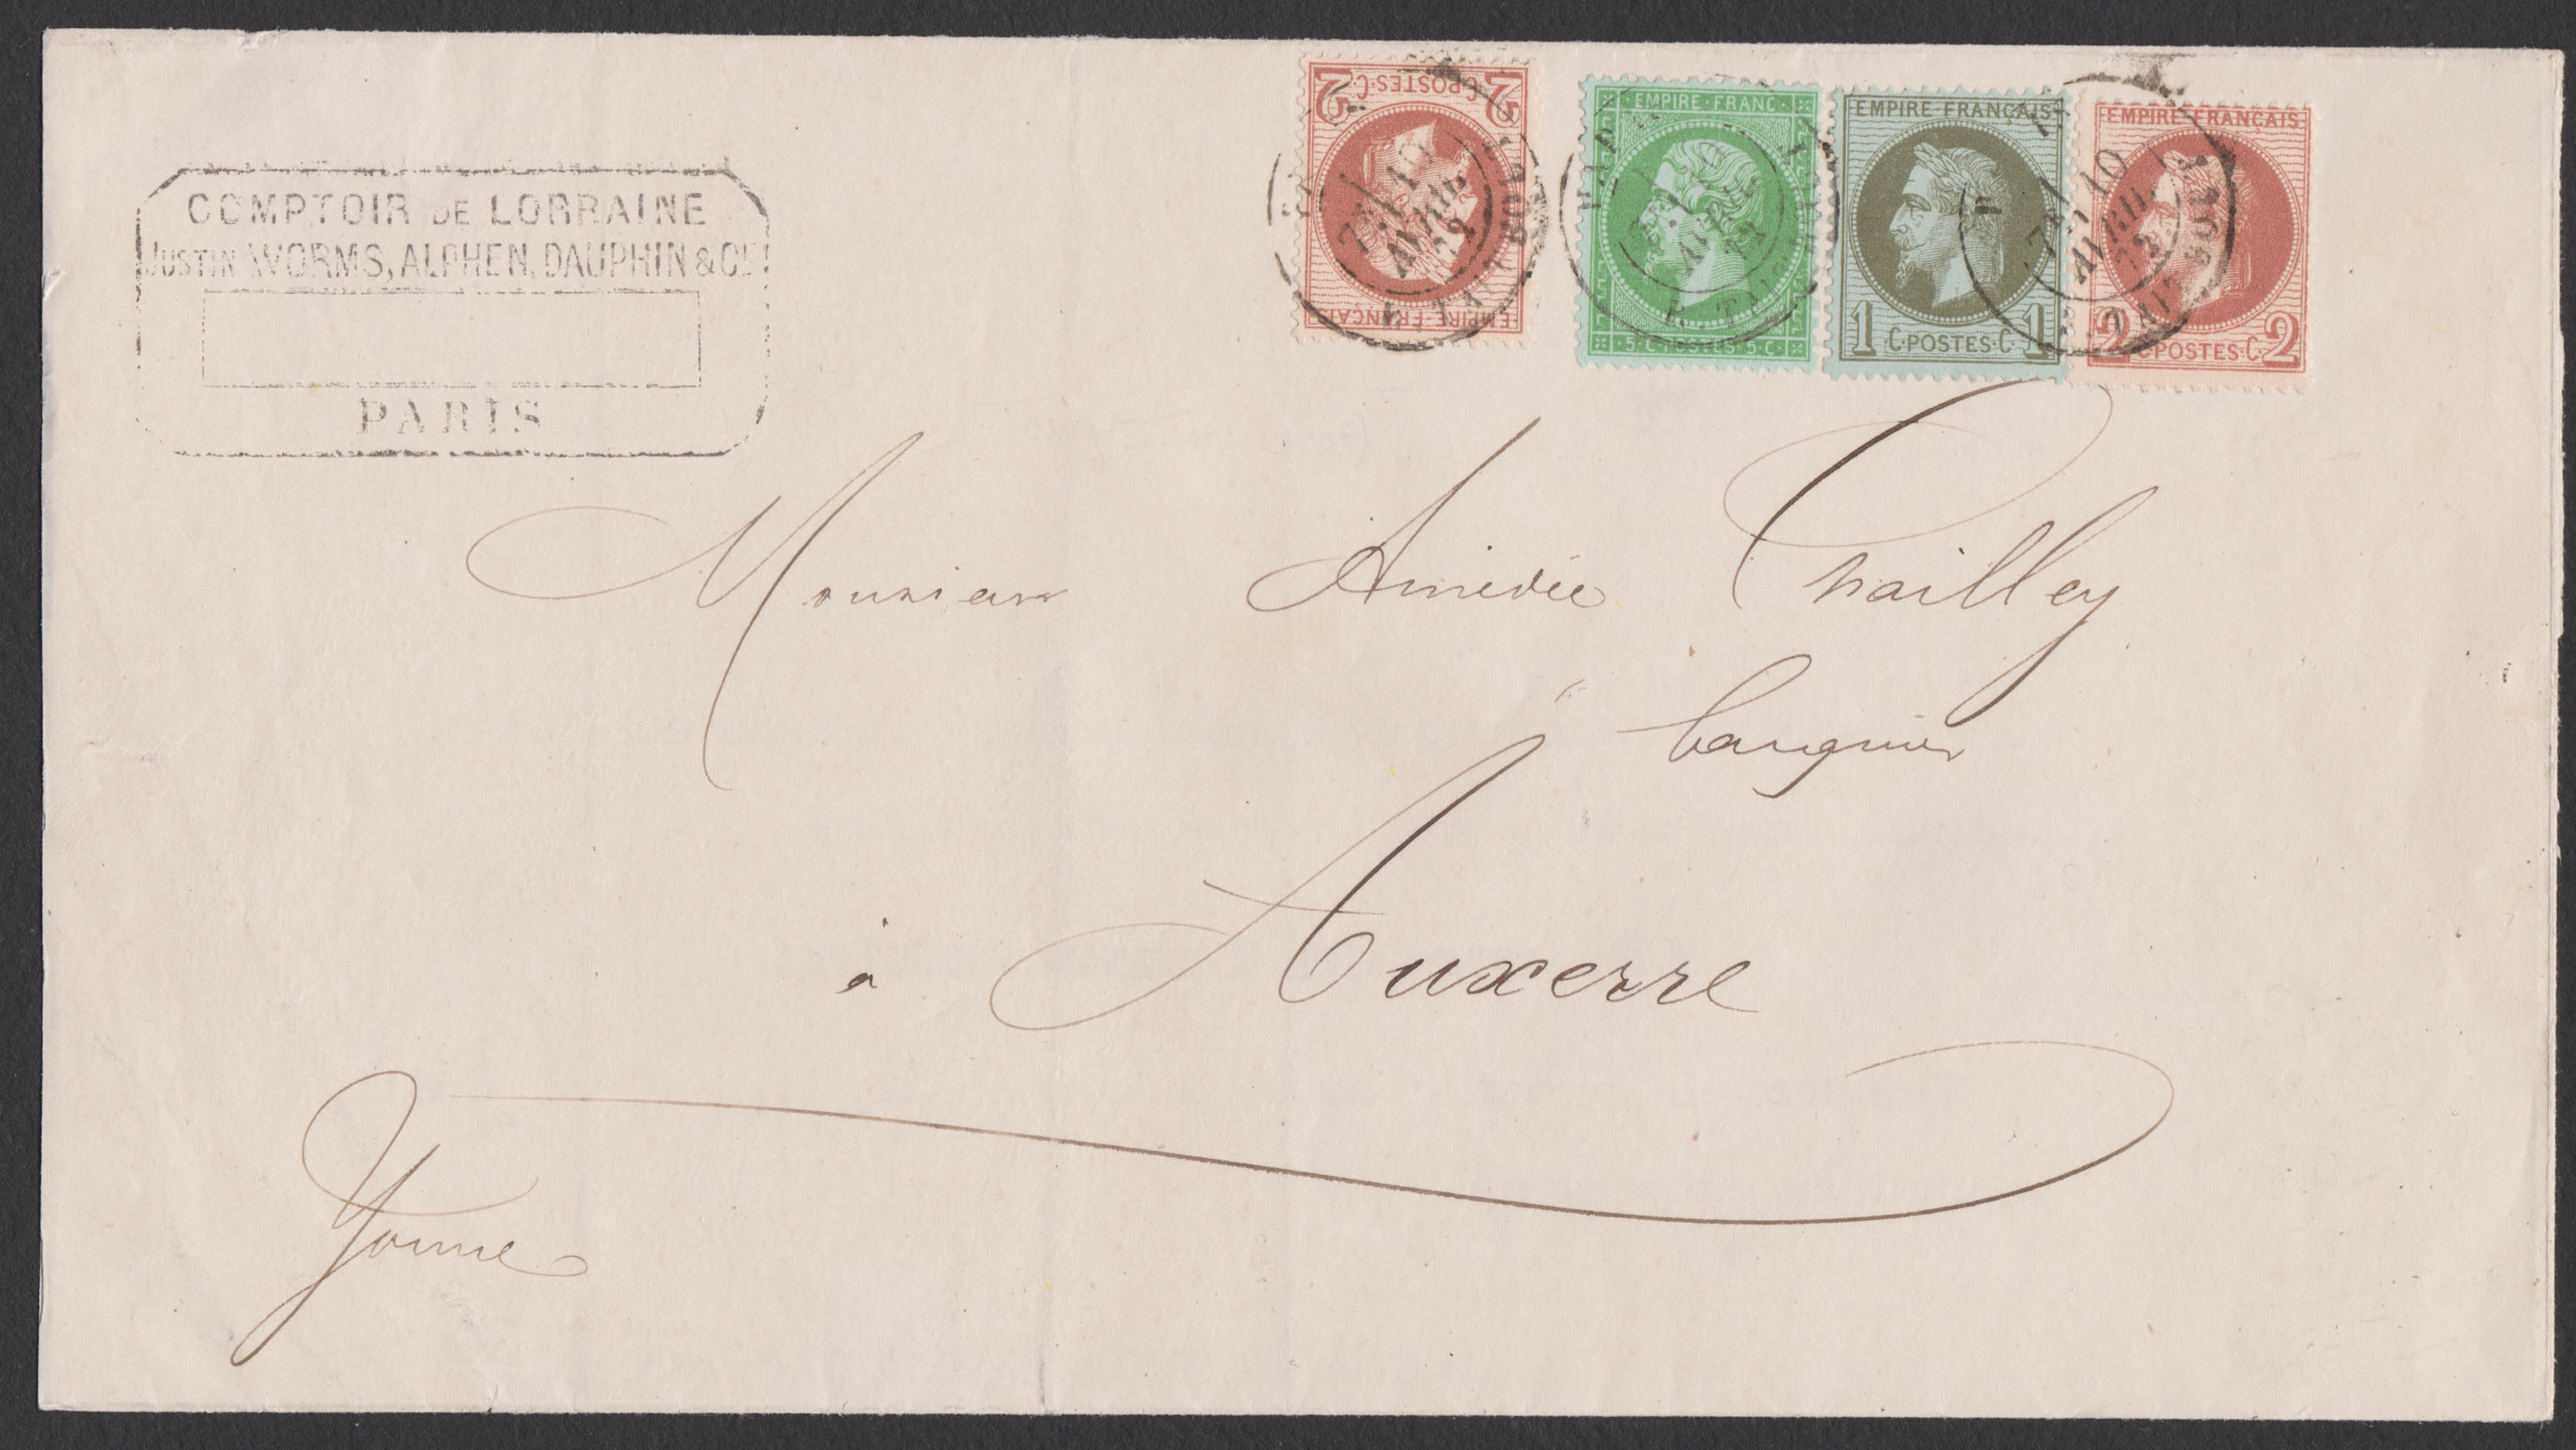 COMPTOIR DE LORRAINE
JUSTIN WORMS, ALPHEN, DAUPHIN & CIE
PARIS
2 C·POSTES·C 2
EMPIRE·FRANÇAIS
EMPIRE·FRANC·
·5·C·POSTES·5·C·
EMPIRE·FRANÇAIS
1 C·POSTES·C 1
EMPIRE·FRANÇAIS
2 C·POSTES·C 2
AVRIL
72
AVRIL
72
Monsieur Amédée Chailley
banquier
à Auxerre
Yonne